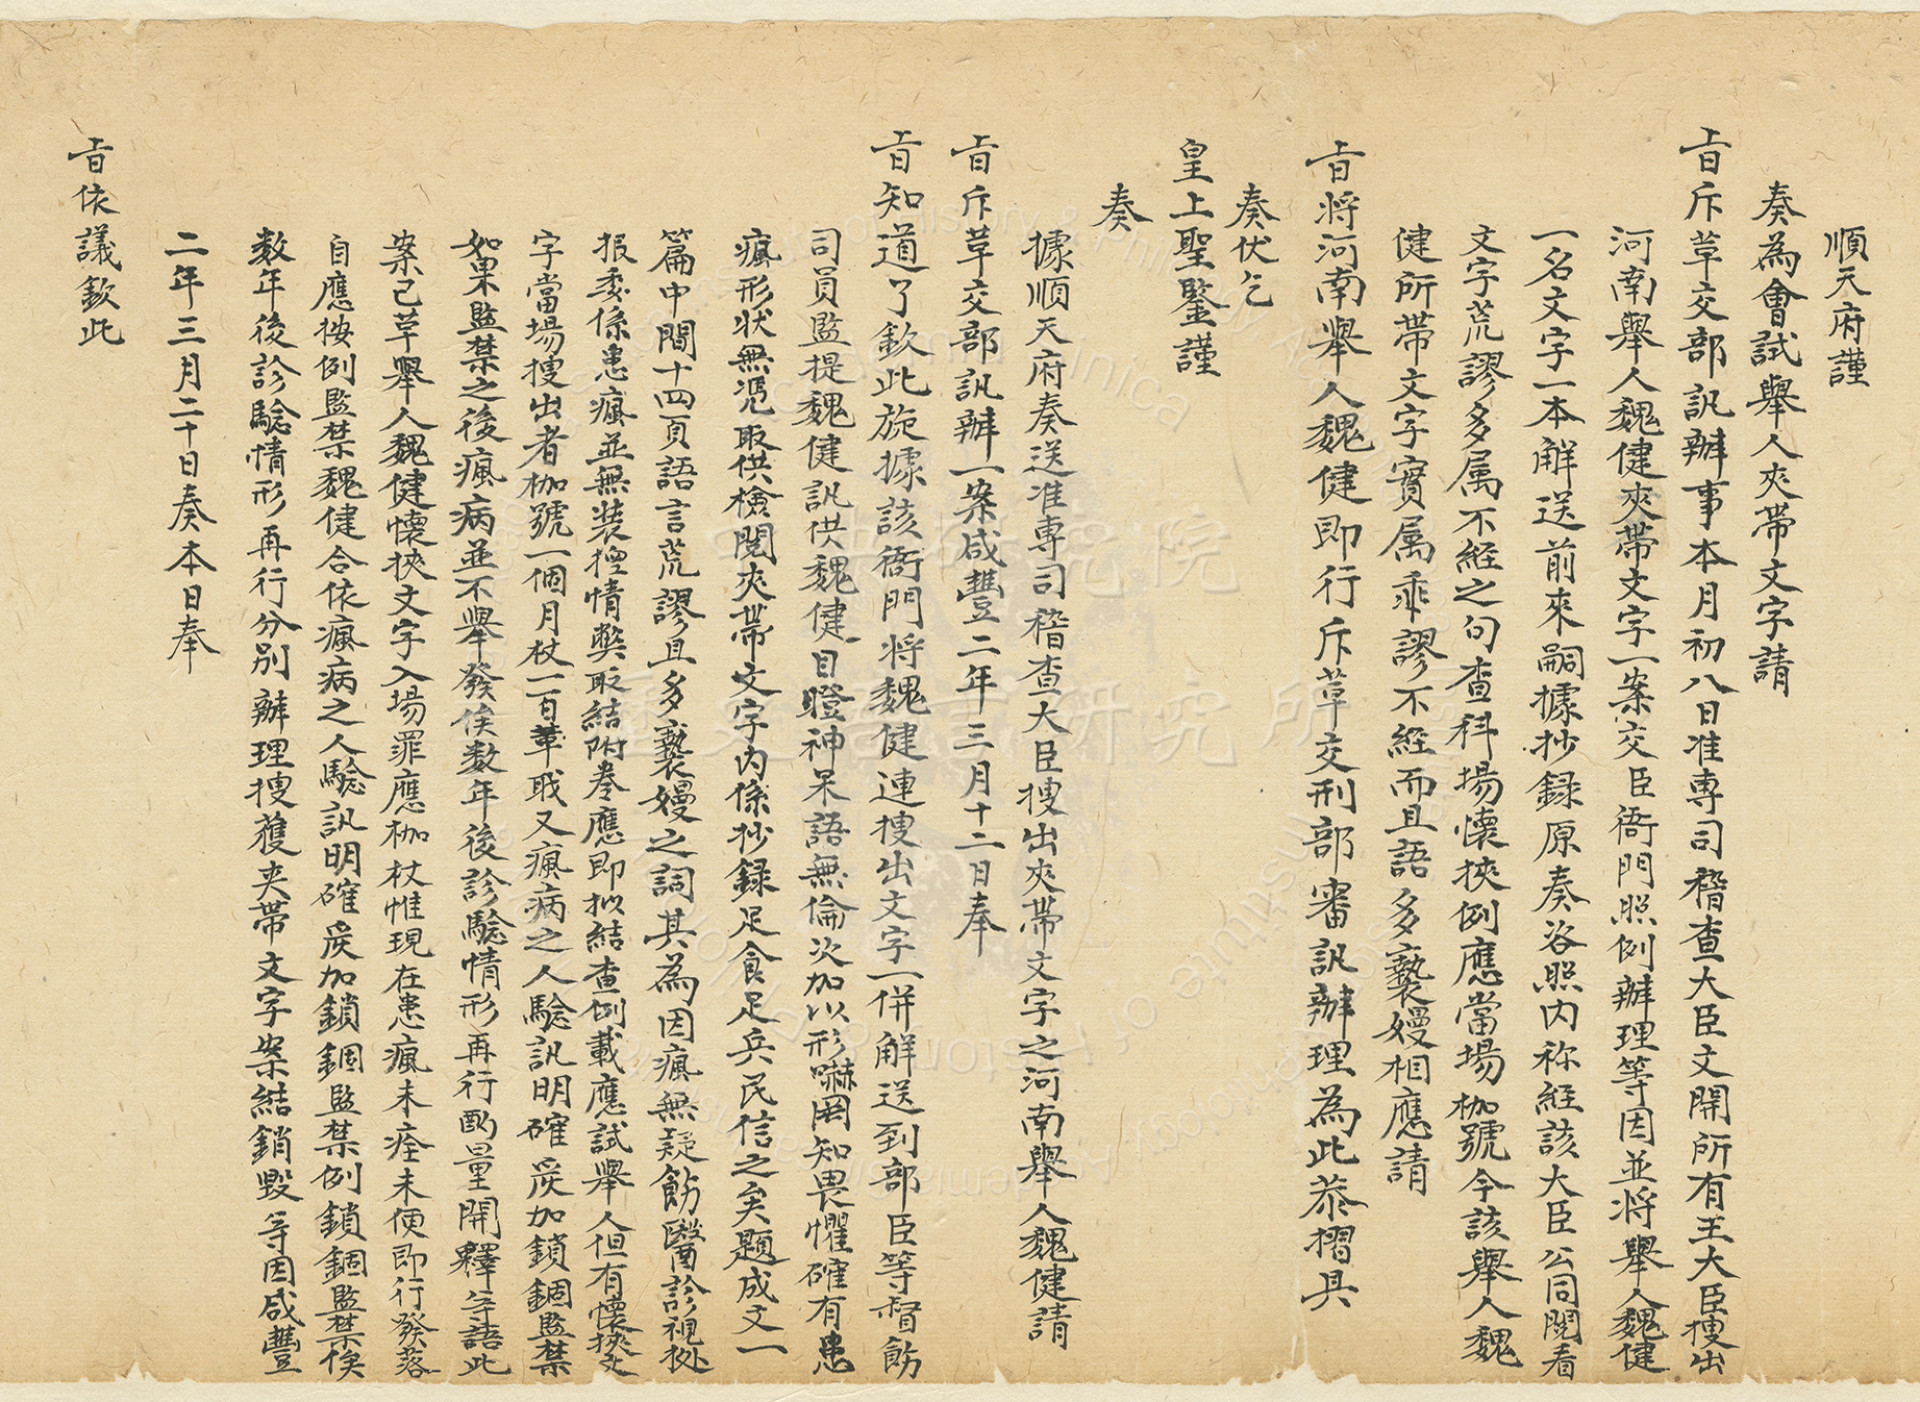 順天府謹
奏為會試舉人夾帶文字請
旨斥革交部訊辦事本月初八日准專司稽查大臣文開所有王大臣搜出
河南舉人魏健夾帶文字一案交臣衙門照例辦理等因並將舉人魏健
一名文字一本解送前來嗣據抄録原奏咨照内称経該大臣公同閱看
文字荒謬多属不經之句查科場懷挾例應當場枷號今該舉人魏
健所帶文字實属乖謬不經而且語多褻嫚相應請
旨將河南舉人魏健即行斥革交刑部審訊辦理為此恭摺具
奏伏乞
皇上聖鑒謹
奏
據順天府奏送准専司稽查大臣搜出夾帶文字之河南舉人魏健請
旨斥革交部訊辦一案咸豐二年三月十二日奉
旨知道了欽此旋據該衙門将魏健連搜出文字一併解送到部臣等督飭
司員監提魏健訊供魏健目瞪神呆語無倫次加以形嚇罔知畏懼確有患
瘋形状無凴取供檢閱夾帶文字内係抄録足食足兵民信之矣題成文一
篇中間十四頁語言荒謬且多褻嫚之詞其為因瘋無疑飭醫診視拠
报委係患瘋並無装控情獘取結附卷應即拟結查例載應試舉人但有懷挾文
字當場搜出者枷號一個月杖一百革戝又瘋病之人驗訊明確炭加鎖錮監禁
如果監禁之後瘋病並不舉發俟数年後診驗情形再行酌量開釋等語此
案已革舉人魏健懷挾文字入場罪應枷杖惟現在患瘋未痊未便即行發落
自應按例監禁魏健合依瘋病之人驗訊明確炭加鎖錮監禁例鎖錮監禁俟
数年後診驗情形再行分别辦理搜獲夹帶文字案結銷毀等因咸豐
二年三月二十日奏本日奉
旨依議欽此